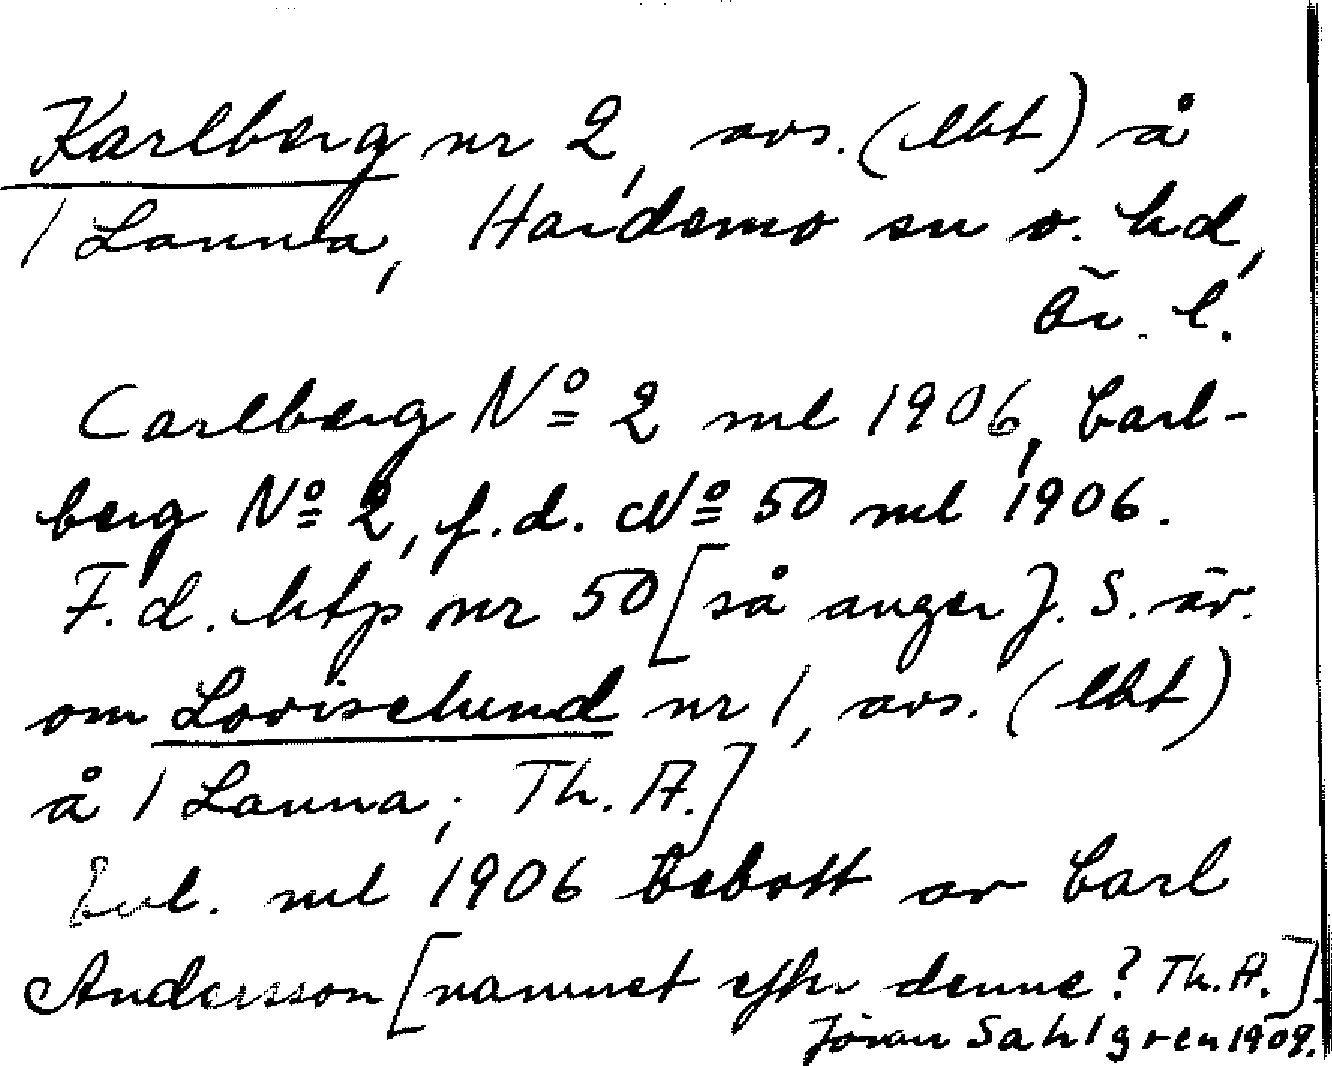 Karlberg nr 2, avs. (lht) å
1 Lanna, Hardemo sn o. hd,
Ör. l.
Carlberg Nº 2 ml 1906, Carl-
berg Nº 2, f.d. Nº 50 ml 1906.
F.d. htp nr 50 [så anger J. S. äv.
om Loviselund nr 1, avs. (lht)
å 1 Lanna; Th. A.]
Enl. ml 1906 bebott av Carl
Andersson [namnet efter denne? Th. A.].
Jöran Sahlgren 1909.